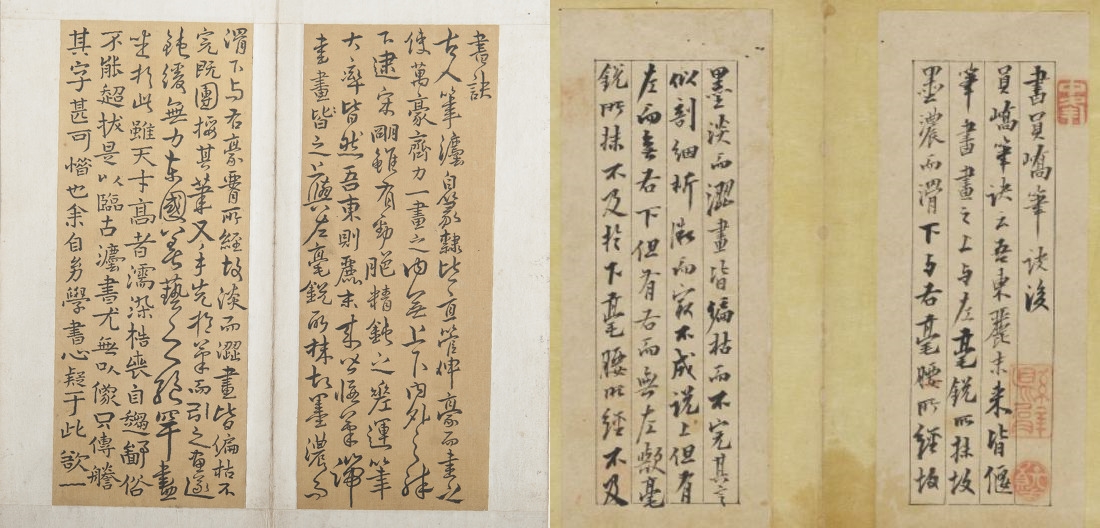 書訣
古人筆灋自篆隸皆直管伸豪而書之
使萬豪齊力一畫之內無上下內外之殊
下逮宋明雖有勁脆精鈍之差運筆
大率皆然吾東則麗末來皆偃筆端
書畫皆之上與左毫銳所抹故墨濃而
滑下与右豪所經故淡而澀畫皆偏枯不
完既團捼其筆又手先於筆而引之畫遂
鈍緩無力東國藝之罕盡
坐於此雖天才高者濡染梏喪自趨鄙俗
不能超拔是以臨古灋書尤無以像只傳謄
其字甚可惜也余自幼學書心疑于此欲一
書員嶠筆訣後
員嶠筆訣云吾東麗末来皆偃
筆書畫之上与左毫銳所抹故
墨濃而滑下与右毫腰所經故
墨淡而澀畫皆偏枯而不完其言
似剖細析微而寂不成說上但有
左而無右下但有右而無左歟毫
銳所抹不及於下毫腰所經不及